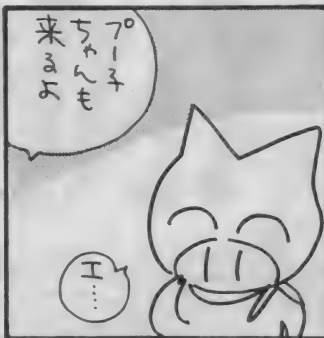 プー子
ちゃんも
来るよ
エ……